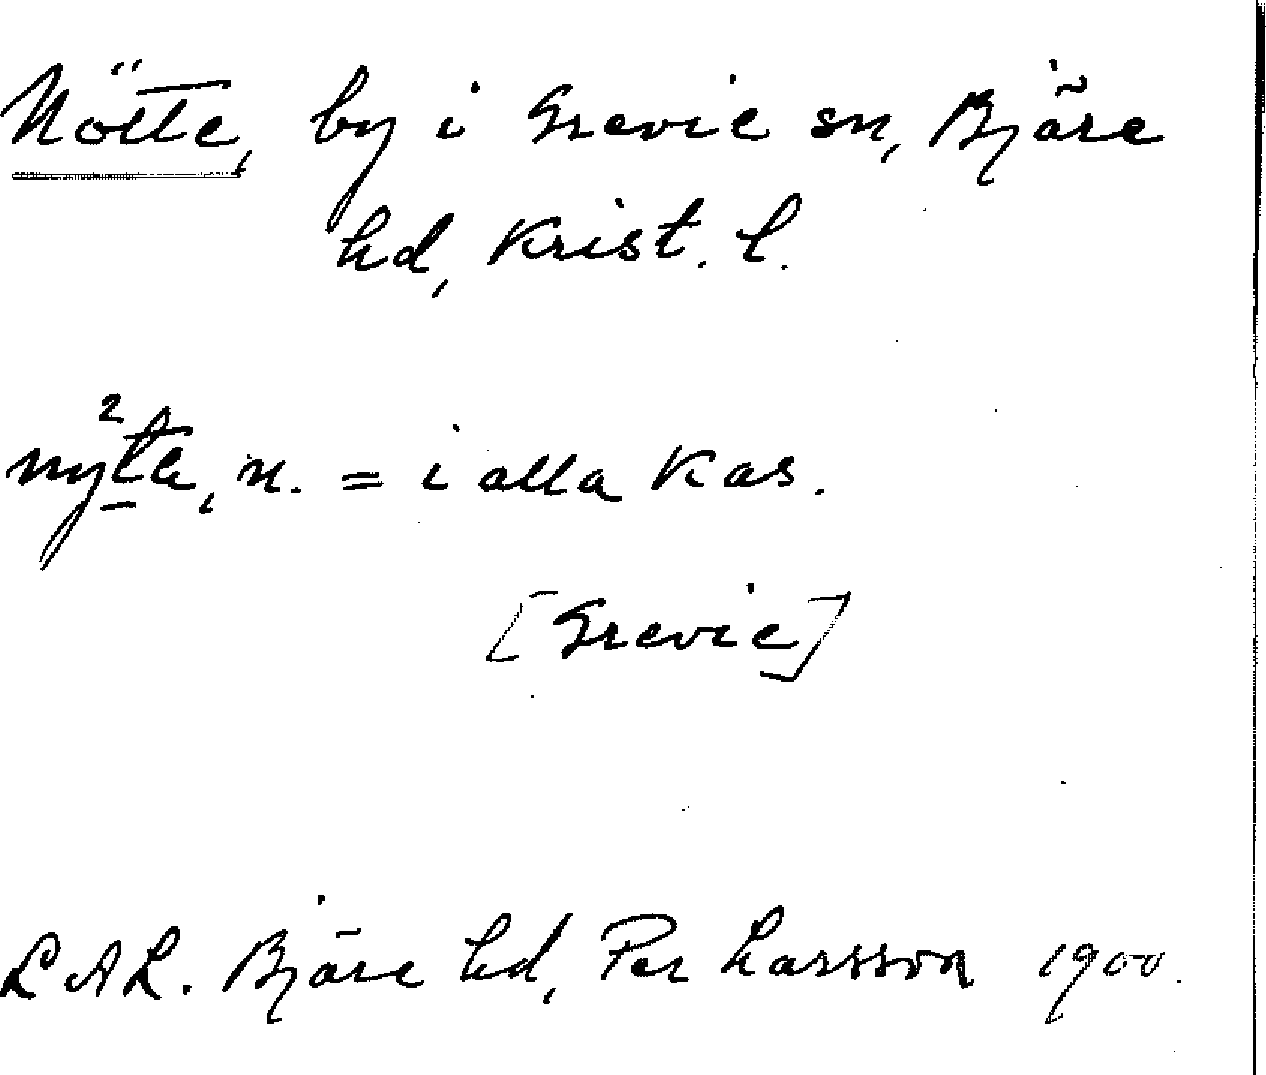 Nötte, by i Grevie sn, Bjäre
hd, Krist. l.
ny²te, n. = i alla kas.
[Grevie]
LAL. Bjäre hd, Per Larsson 1900.